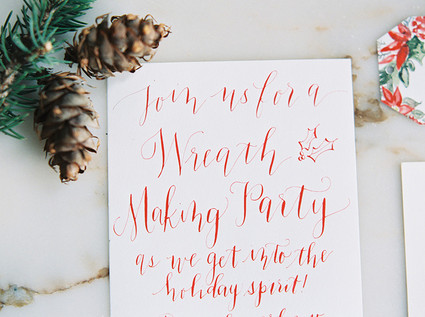 Join us for a
Wreath
Making Party
as we get into the
holiday spirit!